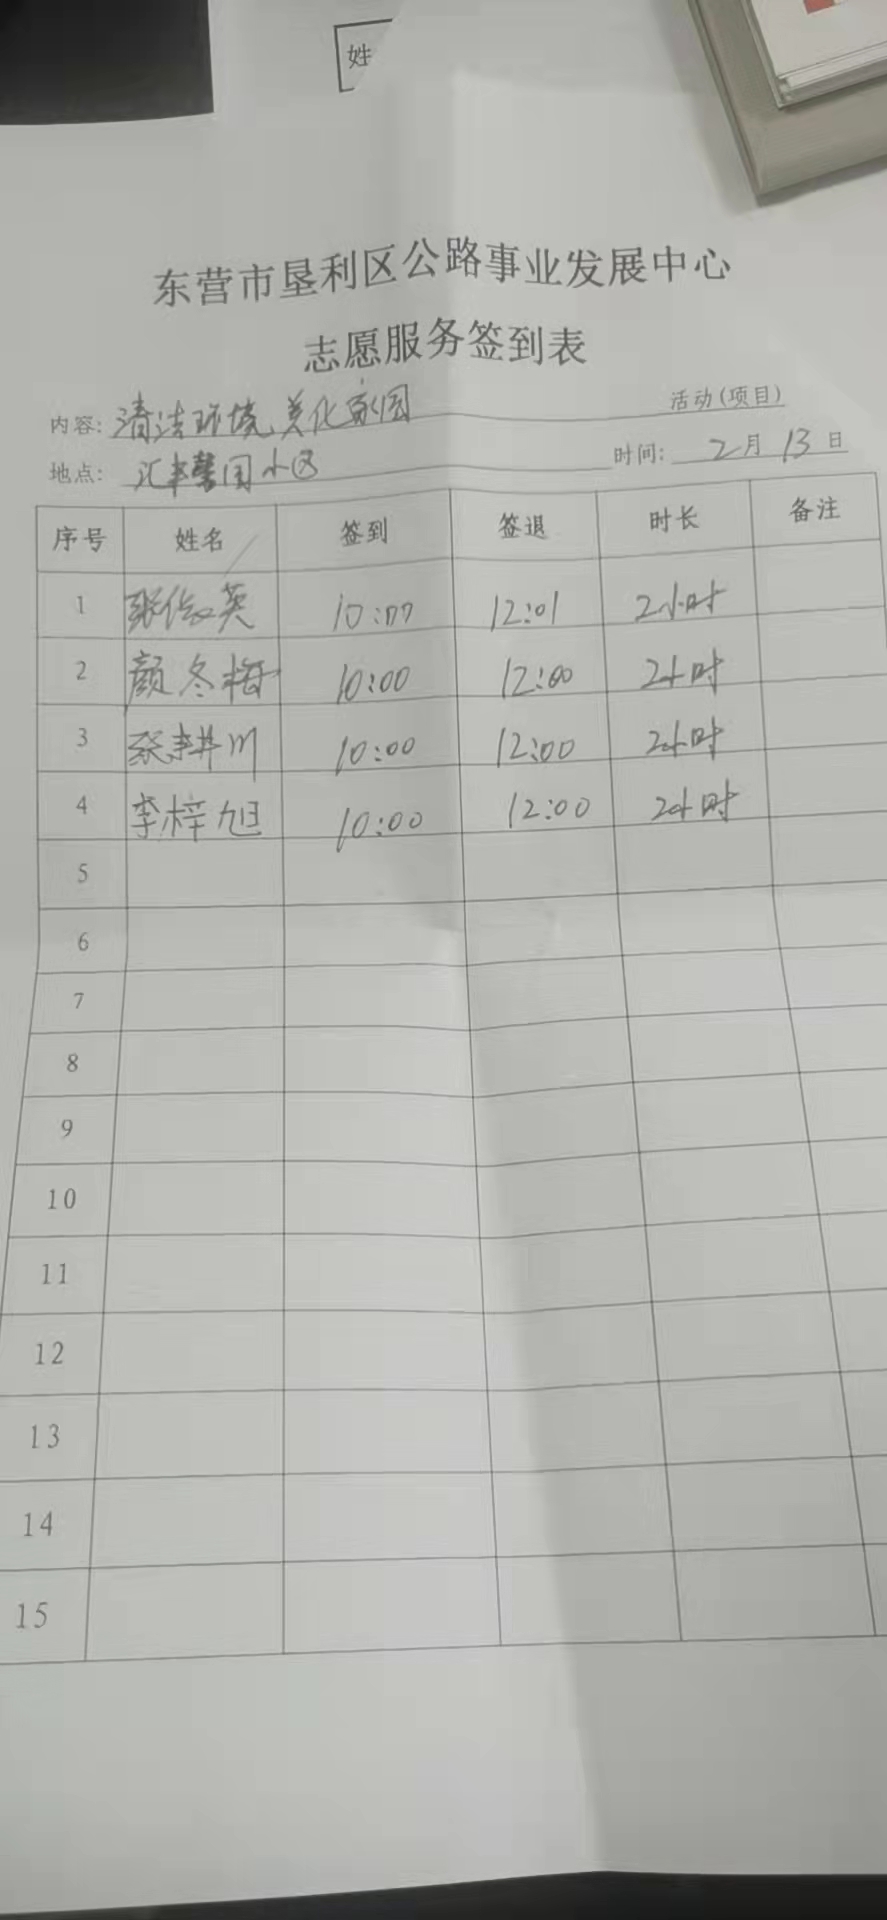 姓
东营市垦利区公路事业发展中心
志愿服务签到表
内容: 清洁环境 美化家园 活动(项目)
地点: 汇丰馨园小区 时间: 2月13日
序号 姓名 签到 签退 时长 备注
1 张俊英 10:00 12:01 2小时
2 颜冬梅 10:00 12:00 2小时
3 张耕川 10:00 12:00 2小时
4 李梓旭 10:00 12:00 2小时
5
6
7
8
9
10
11
12
13
14
15